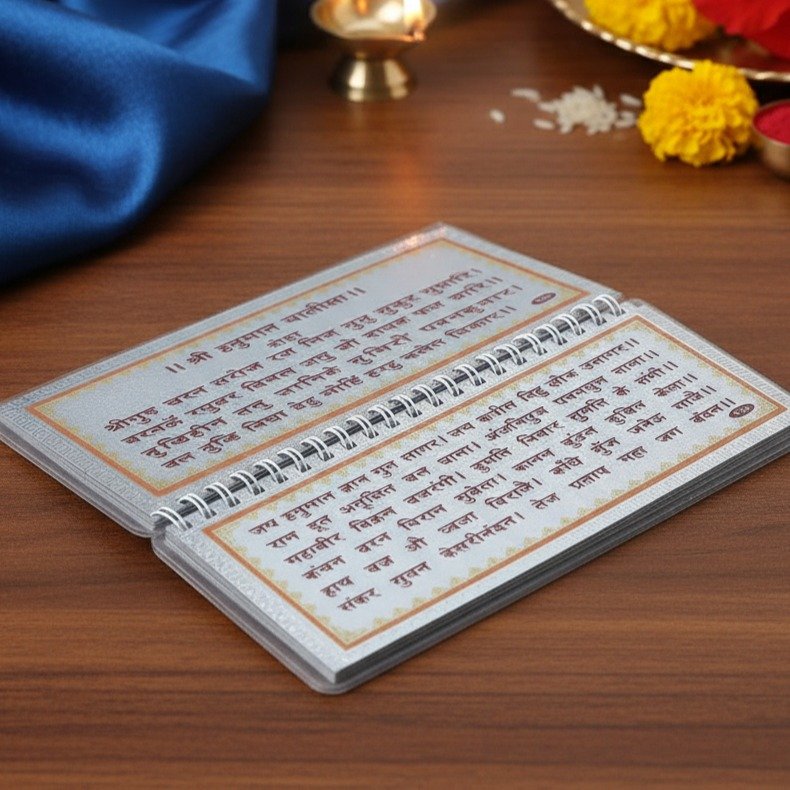 ।। श्री हनुमान चालीसा।।
दोहा
श्रीगुरु चरन सरोज रज निज मुकुर सुधारि।
बरनउं रघुबर बिमल जसु जो दायक फल चारि।
बुद्धिहीन तनु जानिके पवनकुमार।
बल बुद्धि विद्या देहु मोहि हरहु कलेस विकार।।
जय हनुमान ज्ञान गुन सागर। जय कपीस तिहुं लोक उजागर।।
राम दूत अतुलित बल धामा। अंजनिपुत्र पवनसुत नामा।।
महाबीर बिक्रम बजरंगी। कुमति निवार सुमति के संगी।।
कंचन बरन विराज सुवेसा। कानन कुंडल कुंचित केसा।।
हाथ बज्र औ ध्वजा बिराजे। कांधे मूंज जनेउ साजे।।
संकर सुवन केसरीनंदन। तेज प्रताप महा जग बंदन।।